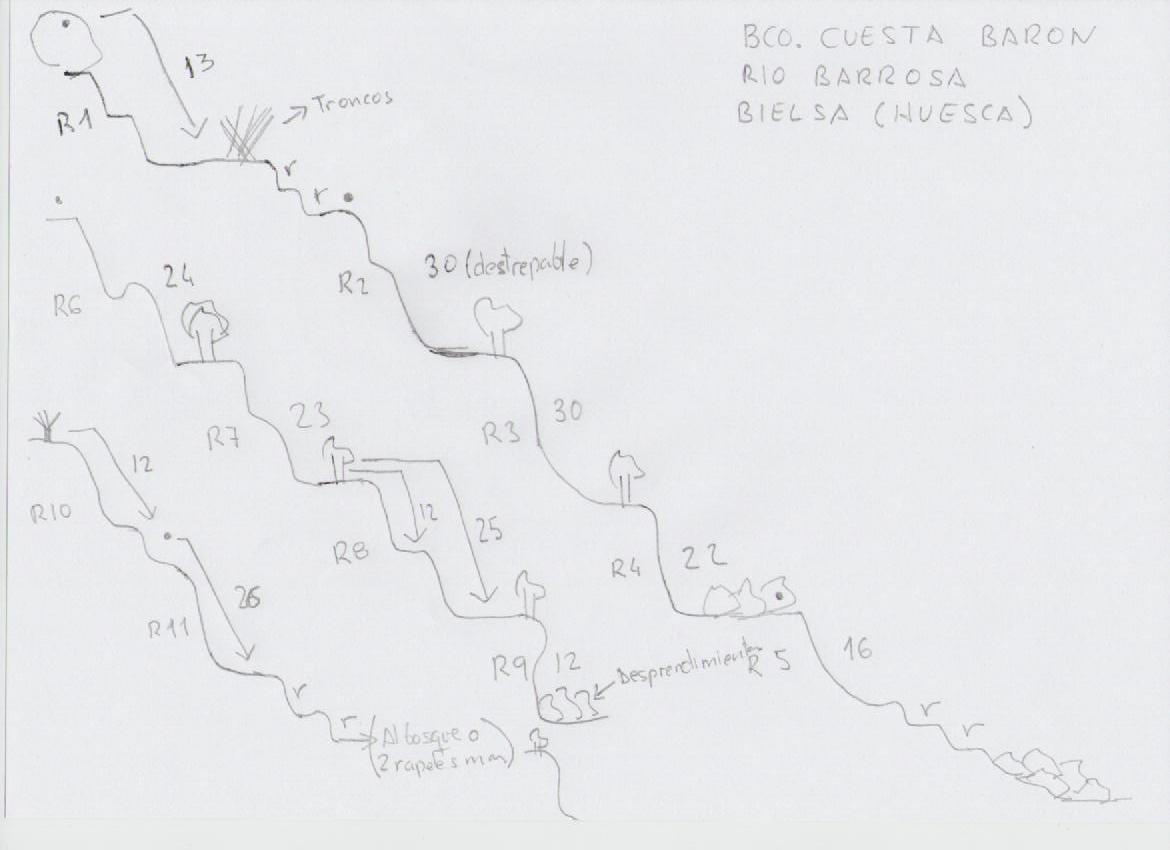 BCO. CUESTA BARON
RIO BARROSA
BIELSA (HUESCA)
13
R1
Troncos
r
r
R2
30 (destrepable)
R3
30
R4
22
R5
16
r
r
R6
24
R7
23
R8
12
25
R9
12
Desprendimiento
R10
12
R11
26
r
r
(Al bosque o
2 rapeles mas)